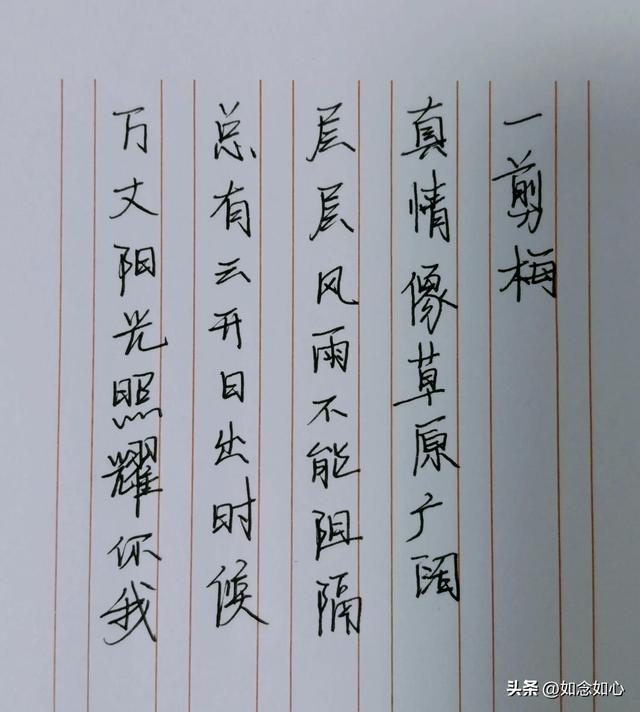 一剪梅
真情像草原广阔
层层风雨不能阻隔
总有云开日出时候
万丈阳光照耀你我
头条 @如念如心